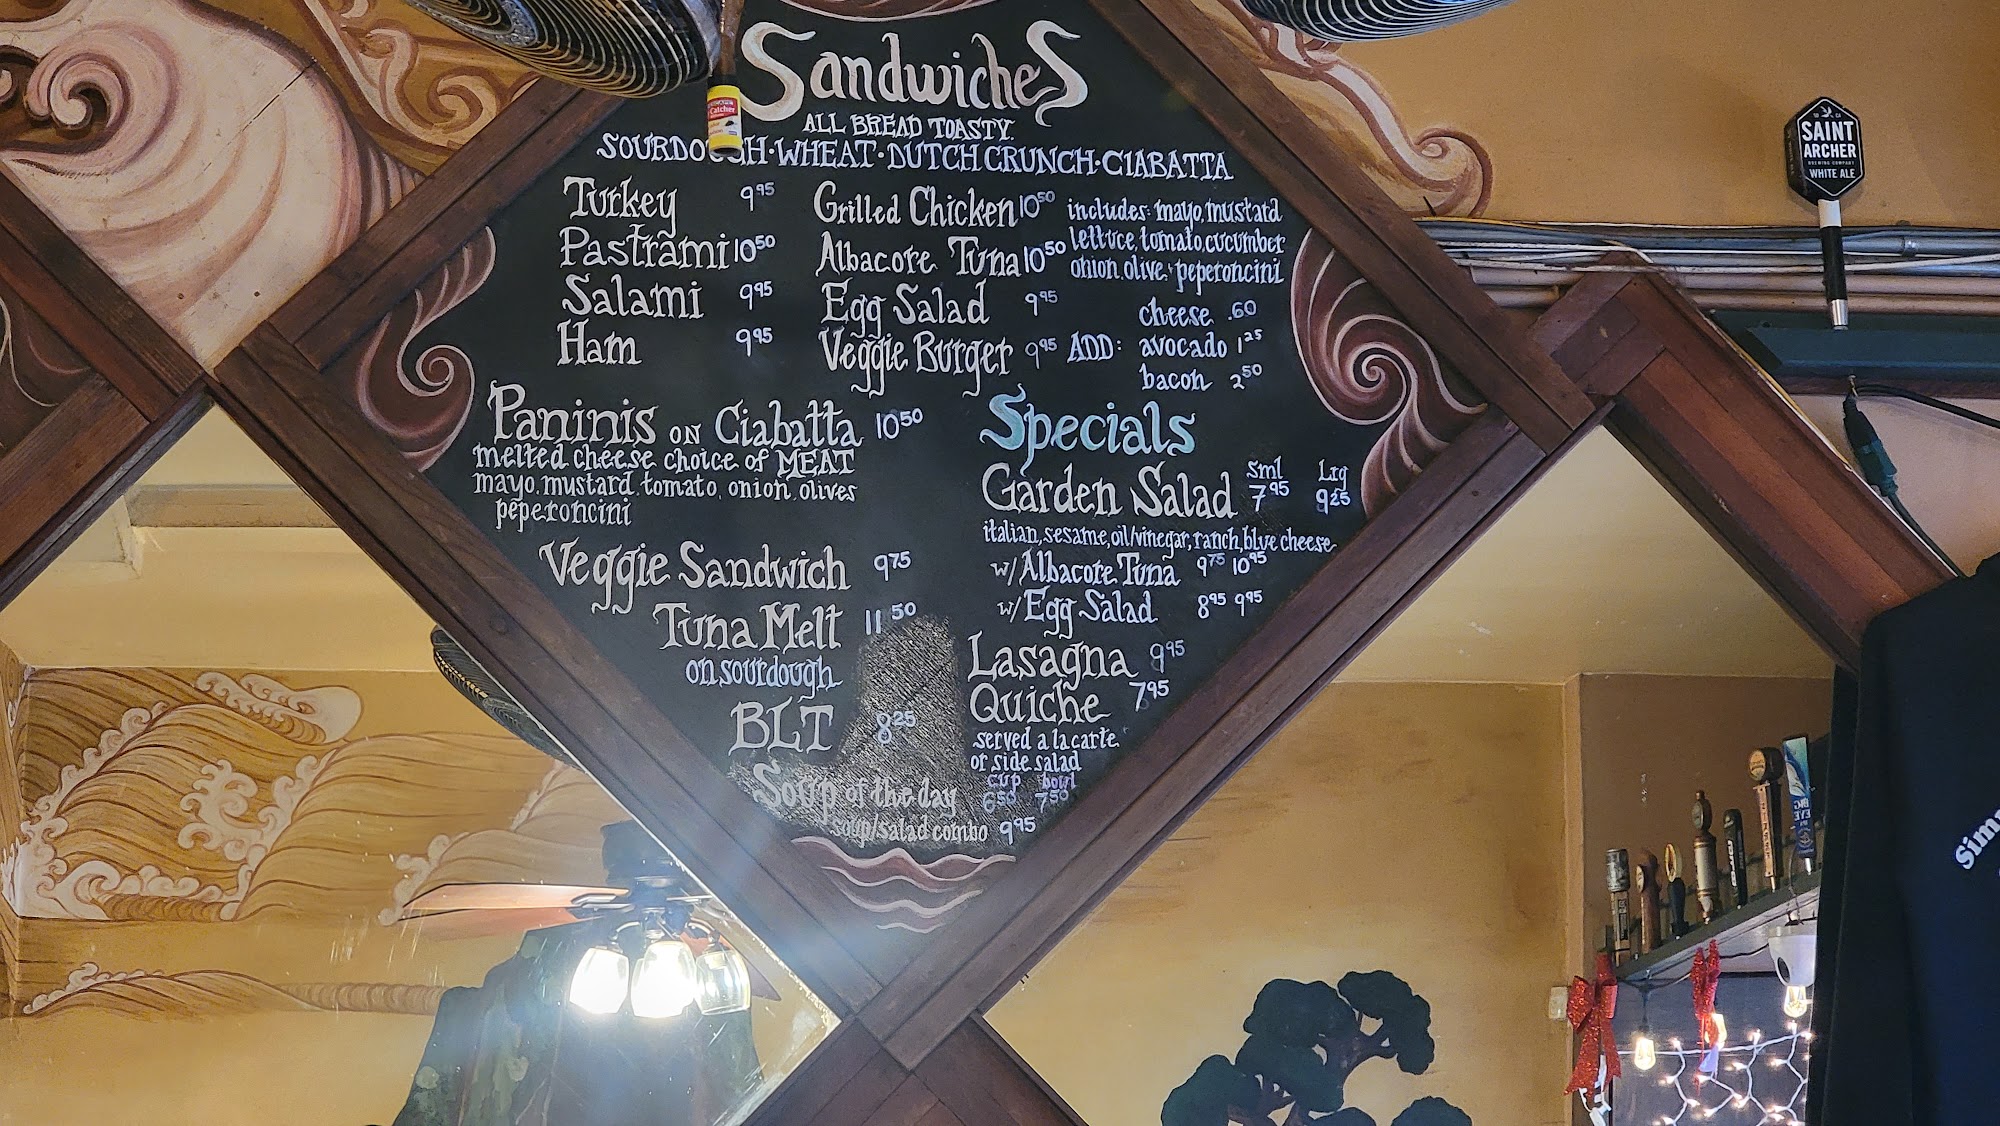 Sandwiches
ALL BREAD TOASTY.
SOURDOUGH·WHEAT·DUTCH CRUNCH·CIABATTA
Turkey 9.95
Pastrami 10.50
Salami 9.95
Ham 9.95
Grilled Chicken 10.50
Albacore Tuna 10.50
Egg Salad 9.95
Veggie Burger 9.95
includes: mayo, mustard
lettuce, tomato, cucumber
onion, olive, peperoncini
ADD:
cheese .60
avocado 1.25
bacon 2.50
Paninis ON Ciabatta 10.50
melted cheese choice of MEAT
mayo, mustard, tomato, onion, olives
peperoncini
Veggie Sandwich 9.75
Tuna Melt 11.50
on sourdough
BLT 8.25
Soup of the day
cup bowl
6.50 7.50
soup/salad combo 9.95
Specials
Sml Lrg
Garden Salad 7.95 9.25
italian, sesame, oil/vinegar, ranch, blue cheese
w/ Albacore Tuna 9.75 10.95
w/ Egg Salad 8.95 9.95
Lasagna 9.95
Quiche 7.95
served a la carte
or side salad
Catcher
SAINT
ARCHER
BREWING COMPANY
WHITE ALE